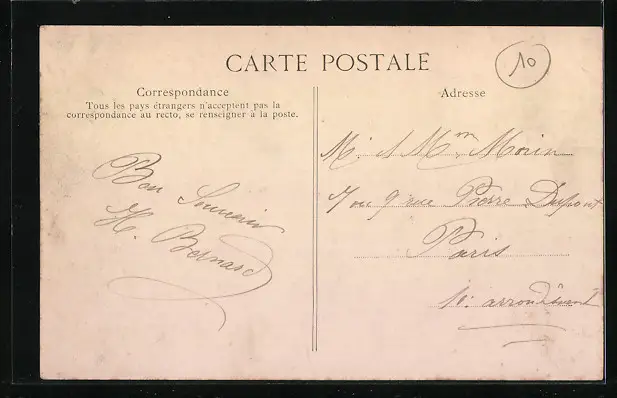 CARTE POSTALE
10
Correspondance
Tous les pays étrangers n'acceptent pas la
correspondance au recto, se renseigner à la poste.
Bon Souvenir
H. Bernard
Adresse
M. et Mme Morin
7 ou 9 rue Pierre Dupont
Paris
10e arrondissement